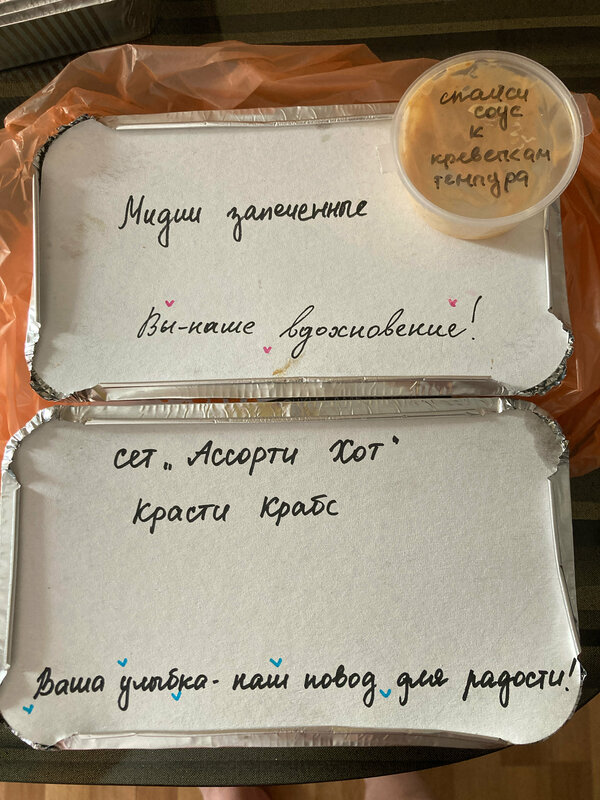 спайси
соус
к
креветкам
темпура
Мидии запеченные
Вы-наше вдохновение!
сет „Ассорти Хот"
Красти Крабс
Ваша улыбка- наш повод для радости!